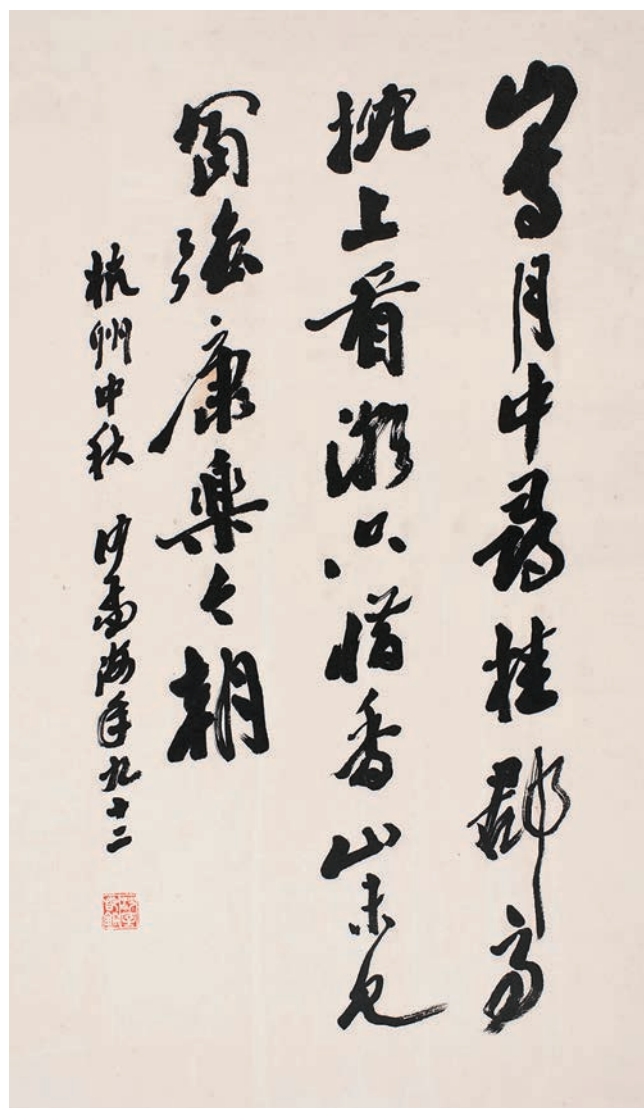 山寺月中尋桂郡亭
枕上看潮只惜香山未見
富強康樂之朝
杭州中秋 沙孟海年九十二